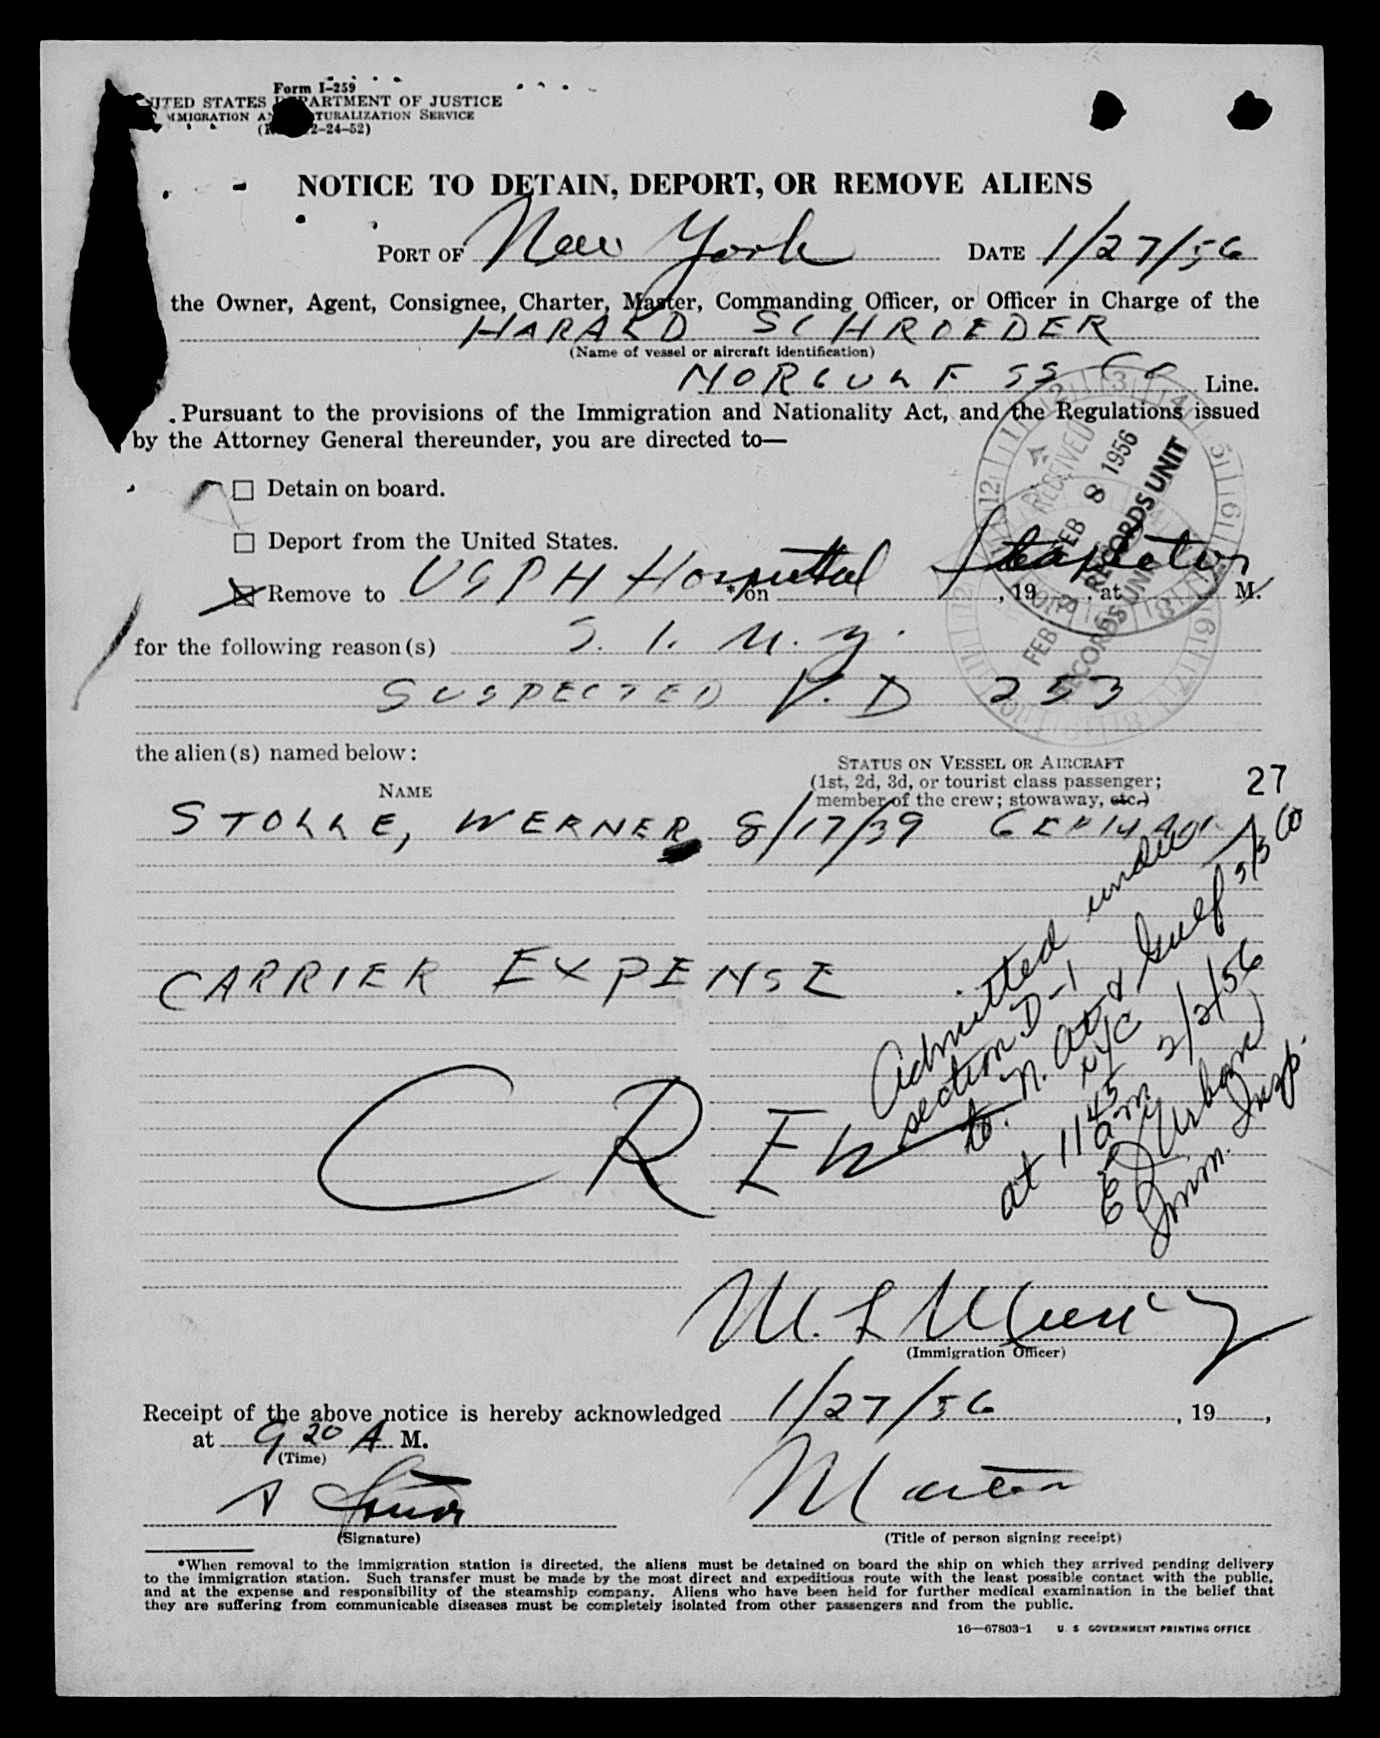 Form I-259
UNITED STATES DEPARTMENT OF JUSTICE
IMMIGRATION AND NATURALIZATION SERVICE
2-24-52)
NOTICE TO DETAIN, DEPORT, OR REMOVE ALIENS
PORT OF New York DATE 1/27/56
the Owner, Agent, Consignee, Charter, Master, Commanding Officer, or Officer in Charge of the
HARALD SCHROEDER
(Name of vessel or aircraft identification)
NORGULF SS Co Line.
Pursuant to the provisions of the Immigration and Nationality Act, and the Regulations issued
by the Attorney General thereunder, you are directed to—
RECEIVED
FEB 8 1956
RECORDS UNIT
☐ Detain on board.
☐ Deport from the United States.
☒ Remove to USPH Hospital Stapleton *on , 19 , at M.
FEB
RECORDS UNIT
for the following reason(s) S. I. N. Y.
SUSPECTED V. D 253
the alien(s) named below:
STATUS ON VESSEL OR AIRCRAFT
(1st, 2d, 3d, or tourist class passenger;
member of the crew; stowaway, etc.)
NAME
27
STOLLE, WERNER 8/17/39 GERMAN
CARRIER EXPENSE
CREW
Admitted under
section D-1
to N. At & Gulf
NYC
at 11 45 am 2/2/56
E Urban
Imm. Insp.
M. L
(Immigration Officer)
Receipt of the above notice is hereby acknowledged 1/27/56, 19 ,
at 9 20 A M.
(Time)
Master
(Signature)
(Title of person signing receipt)
*When removal to the immigration station is directed, the aliens must be detained on board the ship on which they arrived pending delivery
to the immigration station. Such transfer must be made by the most direct and expeditious route with the least possible contact with the public,
and at the expense and responsibility of the steamship company. Aliens who have been held for further medical examination in the belief that
they are suffering from communicable diseases must be completely isolated from other passengers and from the public.
16—67803-1 U. S. GOVERNMENT PRINTING OFFICE